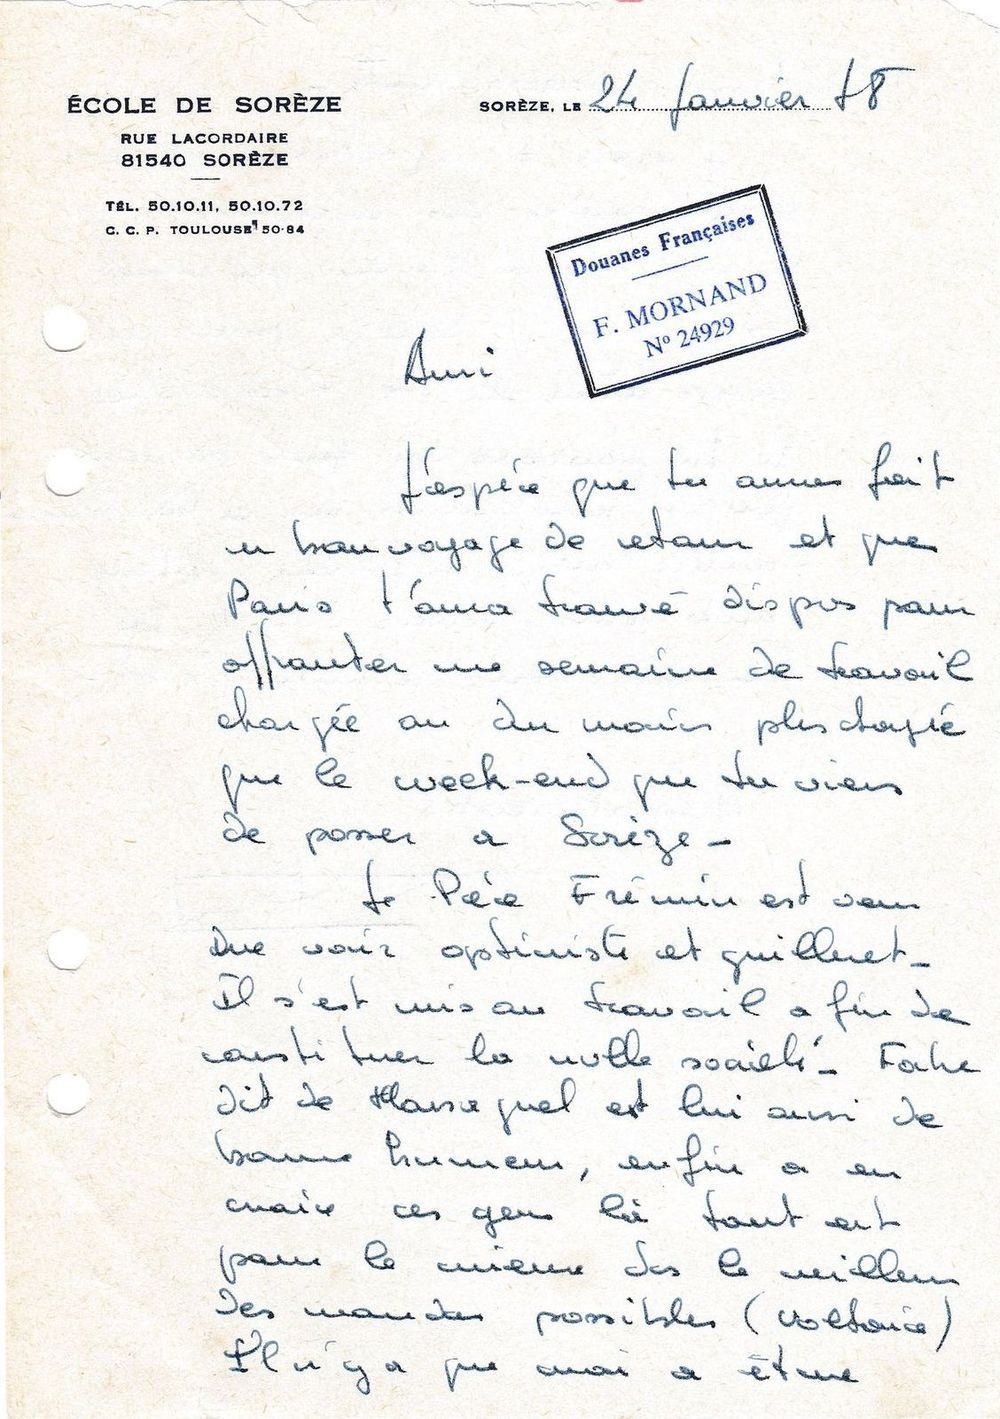 ÉCOLE DE SORÈZE
RUE LACORDAIRE
81540 SORÈZE
TÉL. 50.10.11, 50.10.72
C. C. P. TOULOUSE 50-84
SORÈZE, LE 24 Janvier 78
Douanes Françaises
F. MORNAND
Nº 24929
Ami
J'espère que tu auras fait
un bon voyage de retour et que
Paris t'aura trouvé dispos pour
affronter une semaine de travail
chargée ou du moins plus chargée
que le week-end que tu viens
de passer a Sorèze -
Le Père Frémin est venu
me voir optimiste et guilleret -
Il s'est mis au travail afin de
constituer la nvlle société -
dit de est lui aussi de
bonne humeur, enfin a en
croire ces gens là tout est
pour le mieux ds le meilleur
des mondes possibles (Voltaire)
Il n'y a que moi a être